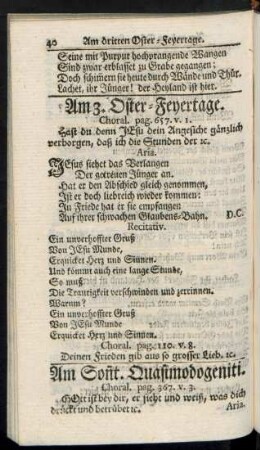 40 Am dritten Oster-Feyertage.
Seine mit Purpur hochprangende Wangen
Sind zwar erblasset zu Grabe gegangen;
Doch schimern sie heute durch Wände und Thür.
Lachet, ihr Jünger! der Heyland ist hier.
Am 3. Oster-Feyertage.
Choral. pag. 657. v. 1.
Hast du denn JEsu dein Angesicht gäntzlich
verborgen, daß ich die Stunden der ꝛc.
Aria.
JEsus siehet das Verlangen
Der getreuen Jünger an.
Hat er den Abschied gleich genommen,
Ist er doch liebreich wieder kommen:
In Friede hat er sie empfangen
Auf ihrer schwachen Glaubens-Bahn. D.C.
Recitativ.
Ein unverhoffter Gruß
Von JEsu Munde,
Erquicket Hertz und Sinnen.
Und kömmt auch eine lange Stunde,
So muß
Die Traurigkeit verschwinden und zerrinnen.
Warum?
Ein unverhoffter Gruß
Von JEsu Munde
Erquicket Hertz und Sinnen.
Choral. pag. 110. v. 8.
Deinen Frieden gib aus so grosser Lieb. ꝛc.
Am Soñt. Quasimodogeniti.
Choral. pag. 367. v. 3.
GOtt ist bey dir, er sieht und weiß, was dich
drückt und betrübet ꝛc. Aria.